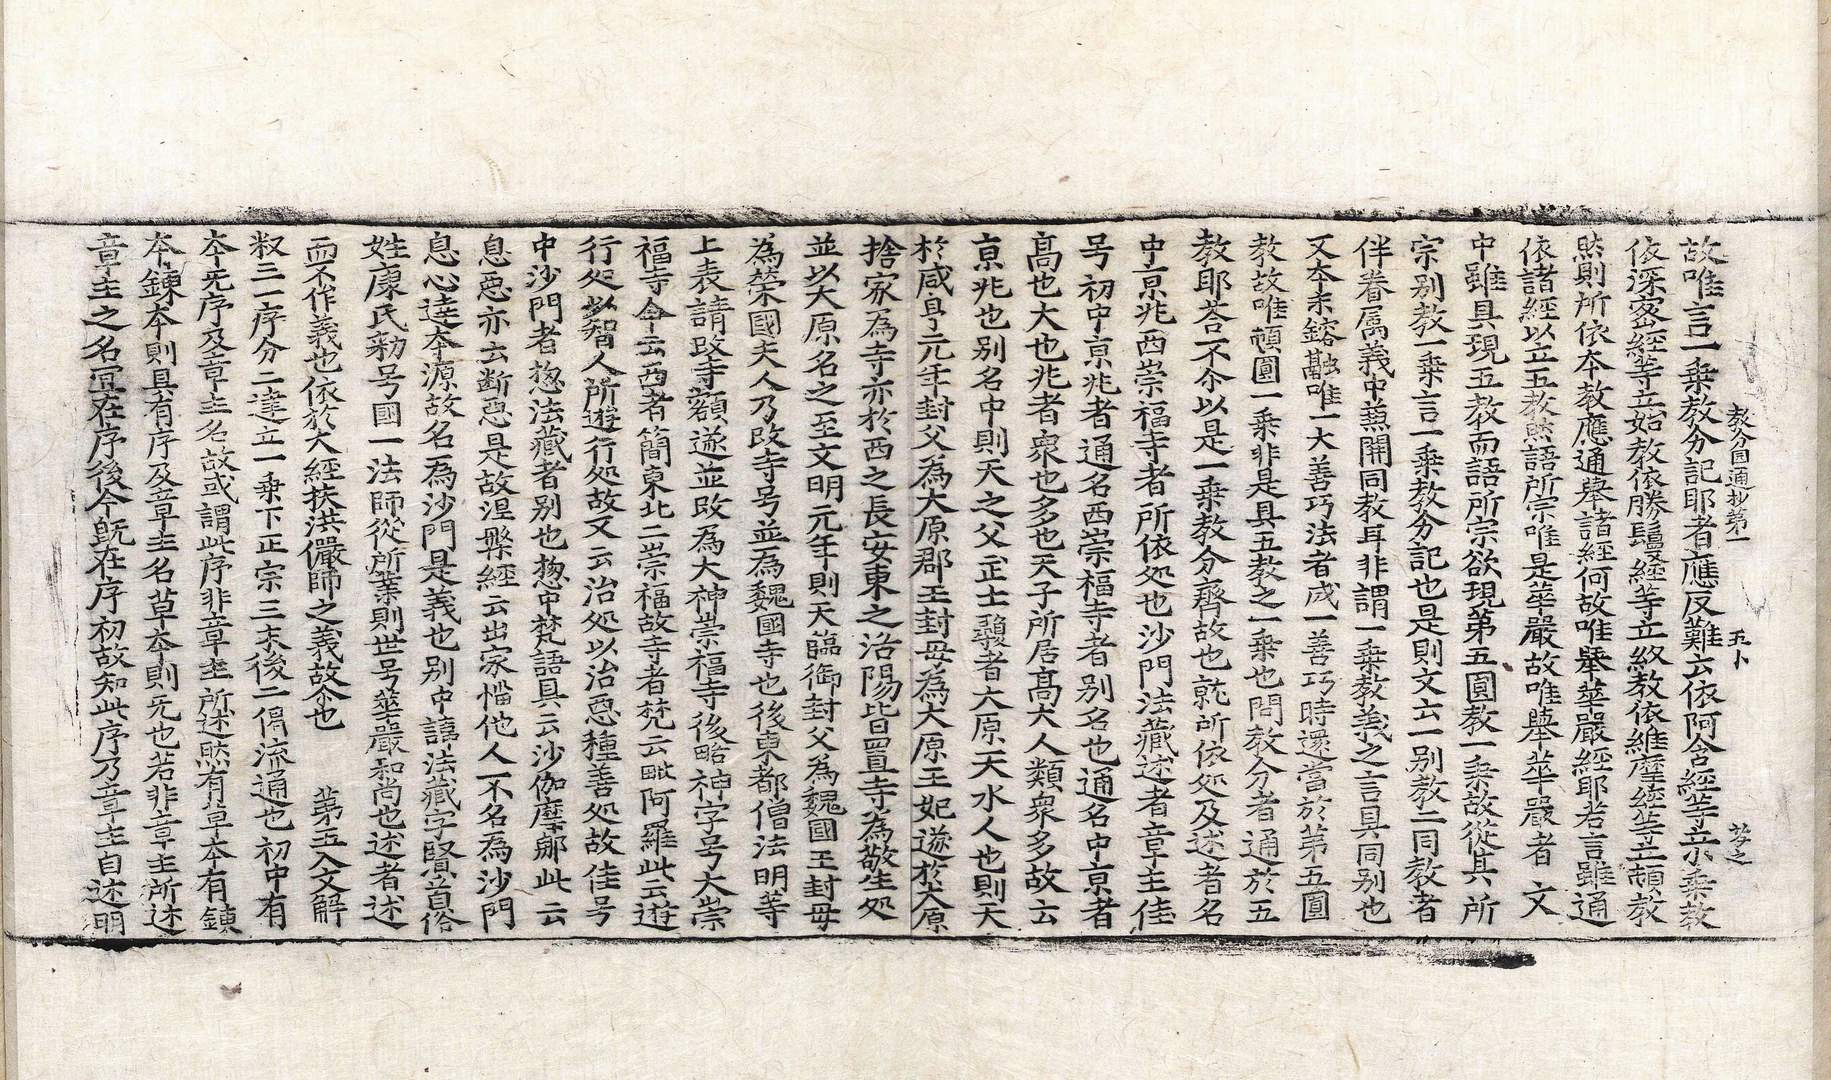 教分圓通抄第一 五卜 㝳之
故唯言一乗教分記耶者應反難云依阿含經等立小乗教
依深密經等立始教依勝鬘經等立終教依維摩經等立頓教
然則所依本教應通擧諸經何故唯擧華嚴經耶若言雖通
依諸經以立五教然語所宗唯是華嚴故唯擧華嚴者 文
中雖具現五教而語所宗欲現第五圓教一乗故從其所
宗別教一乗言一乗教分記也是則文云一別教二同教者
伴眷属義中兼開同教耳非謂一乗教義之言具同别也
又本末鎔融唯一大善巧法者或一善巧時還當於第五圓
教故唯頓圓一乗非是具五教之一乗也問教分者通於五
教耶荅不尒以是一乗教分齊故也就所依処及述者名
中京兆西崇福寺者所依処也沙門法藏述者章主佳
号初中京兆者通名西崇福寺者别名也通名中京者
髙也大也兆者衆也多也天子所居髙大人類衆多故云
京兆也别名中則天之父正士彟者大原一天水人也則天
於咸亨元年封父為大原郡王封母為大原王妃遂於大原
捨家為寺亦於西之長安東之洛陽皆置寺為敬生処
並以大原名之至文明元年則天臨御封父為魏國王封母
為榮國夫人乃改寺号並為魏國寺也後東都僧法明等
上表請改寺額遂並改為大神崇福寺後略神字号大崇
福寺今云西者簡東北二崇福故寺者梵云毗阿羅此云遊
行処以智人所遊行処故又云治処以治惡種善処故佳号
中沙門者惣法藏者别也惣中梵語具云沙伽摩那此云
息惡亦云断惡是故涅槃經云出家惱他人不名為沙門
息心達本源故名為沙門是義也别中諱法藏字賢首俗
姓康氏勑号國一法師從所業則世号華嚴和尚也述者述
而不作義也依於大經扶洪儼師之義故尒也 第五入文解
釈三一序分二建立一乗下正宗三末後二偈流通也初中有
本无序及章主名故或謂此序非章主所述然有草本有鍊
本鍊本則具有序及章主名草本則无也若非章主所述
章主之名宜在序後今旣在序初故知此序乃章主自述明